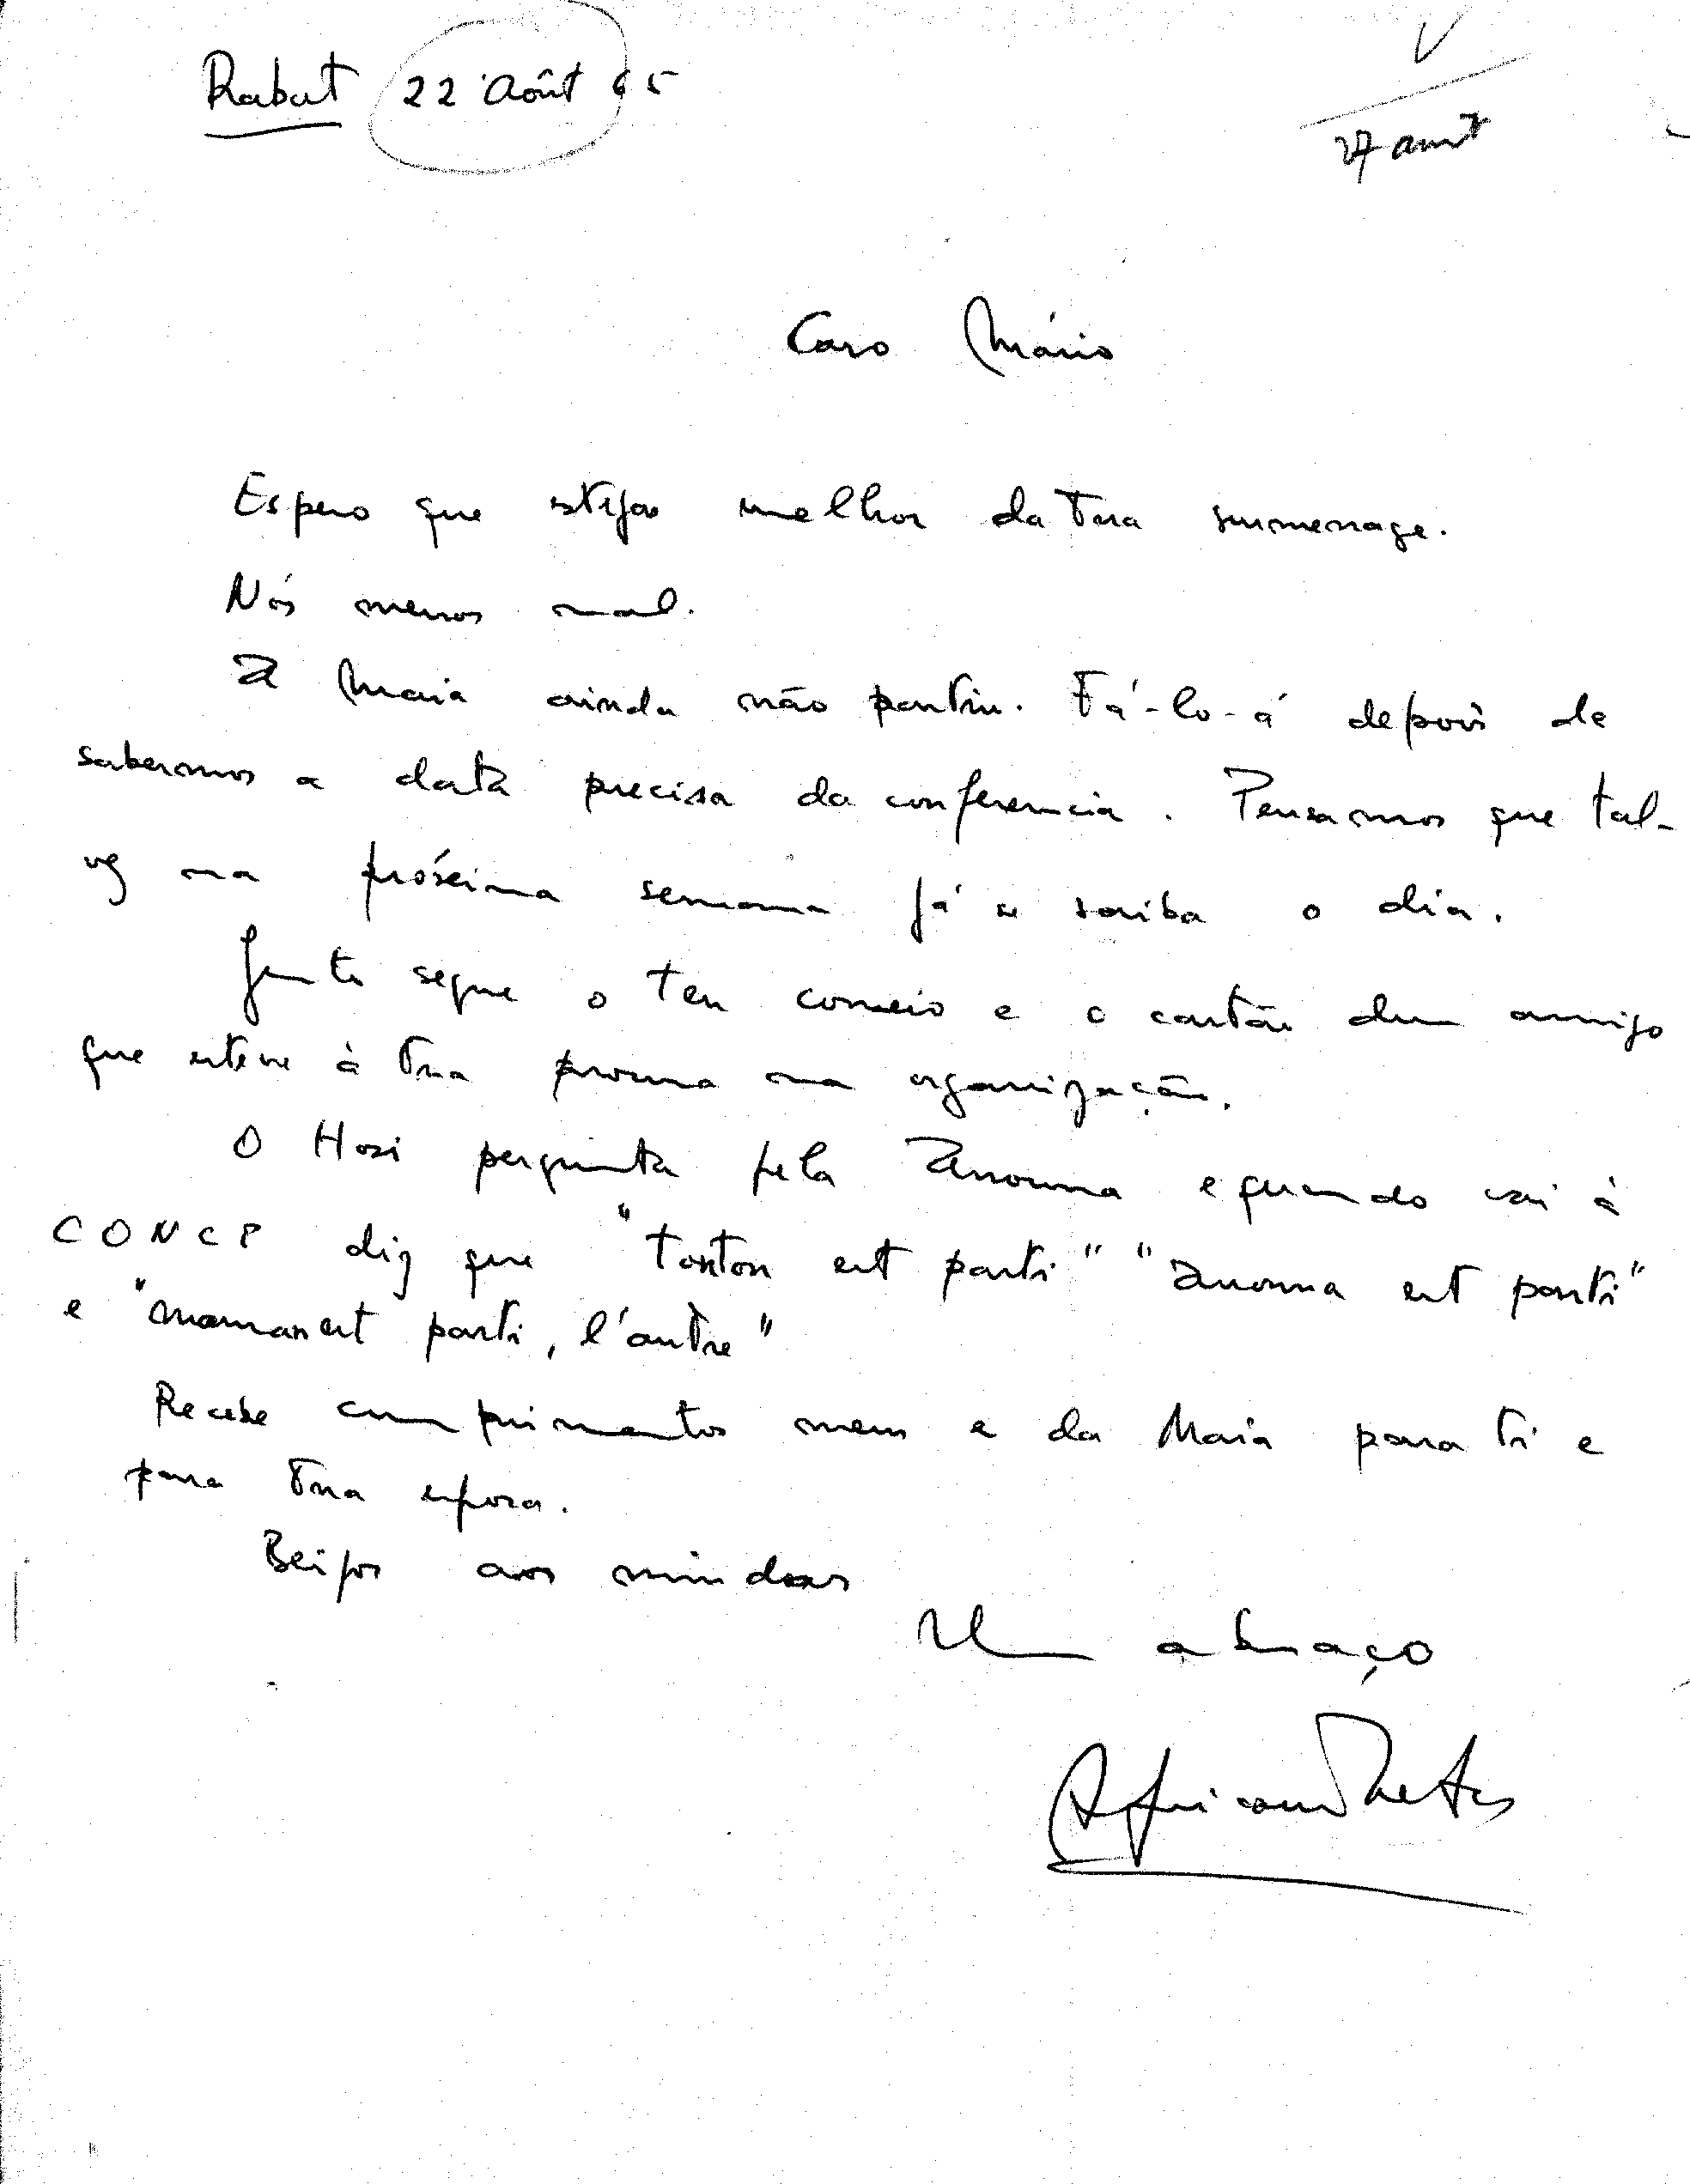 Rabat 22 Août 65
V
27 aout
Caro Mário
Espero que estejas melhor da tua surmenage.
Nós menos mal.
A Maria ainda não partiu. Fá-lo-á depois de
sabermos a data precisa da conferencia. Pensamos que tal-
vez na próxima semana já se saiba o dia.
Junto segue o teu correio e o cartão dum amigo
que esteve à tua procura na organização.
O Hosi pergunta pela Annouma e quando vai à
CONCP diz que "tonton est parti" "Annouma est parti"
e "maman est parti, l'autre"
Recebe cumprimentos meus e da Maria para ti e
para tua esposa.
Beijos aos miudos
Um abraço